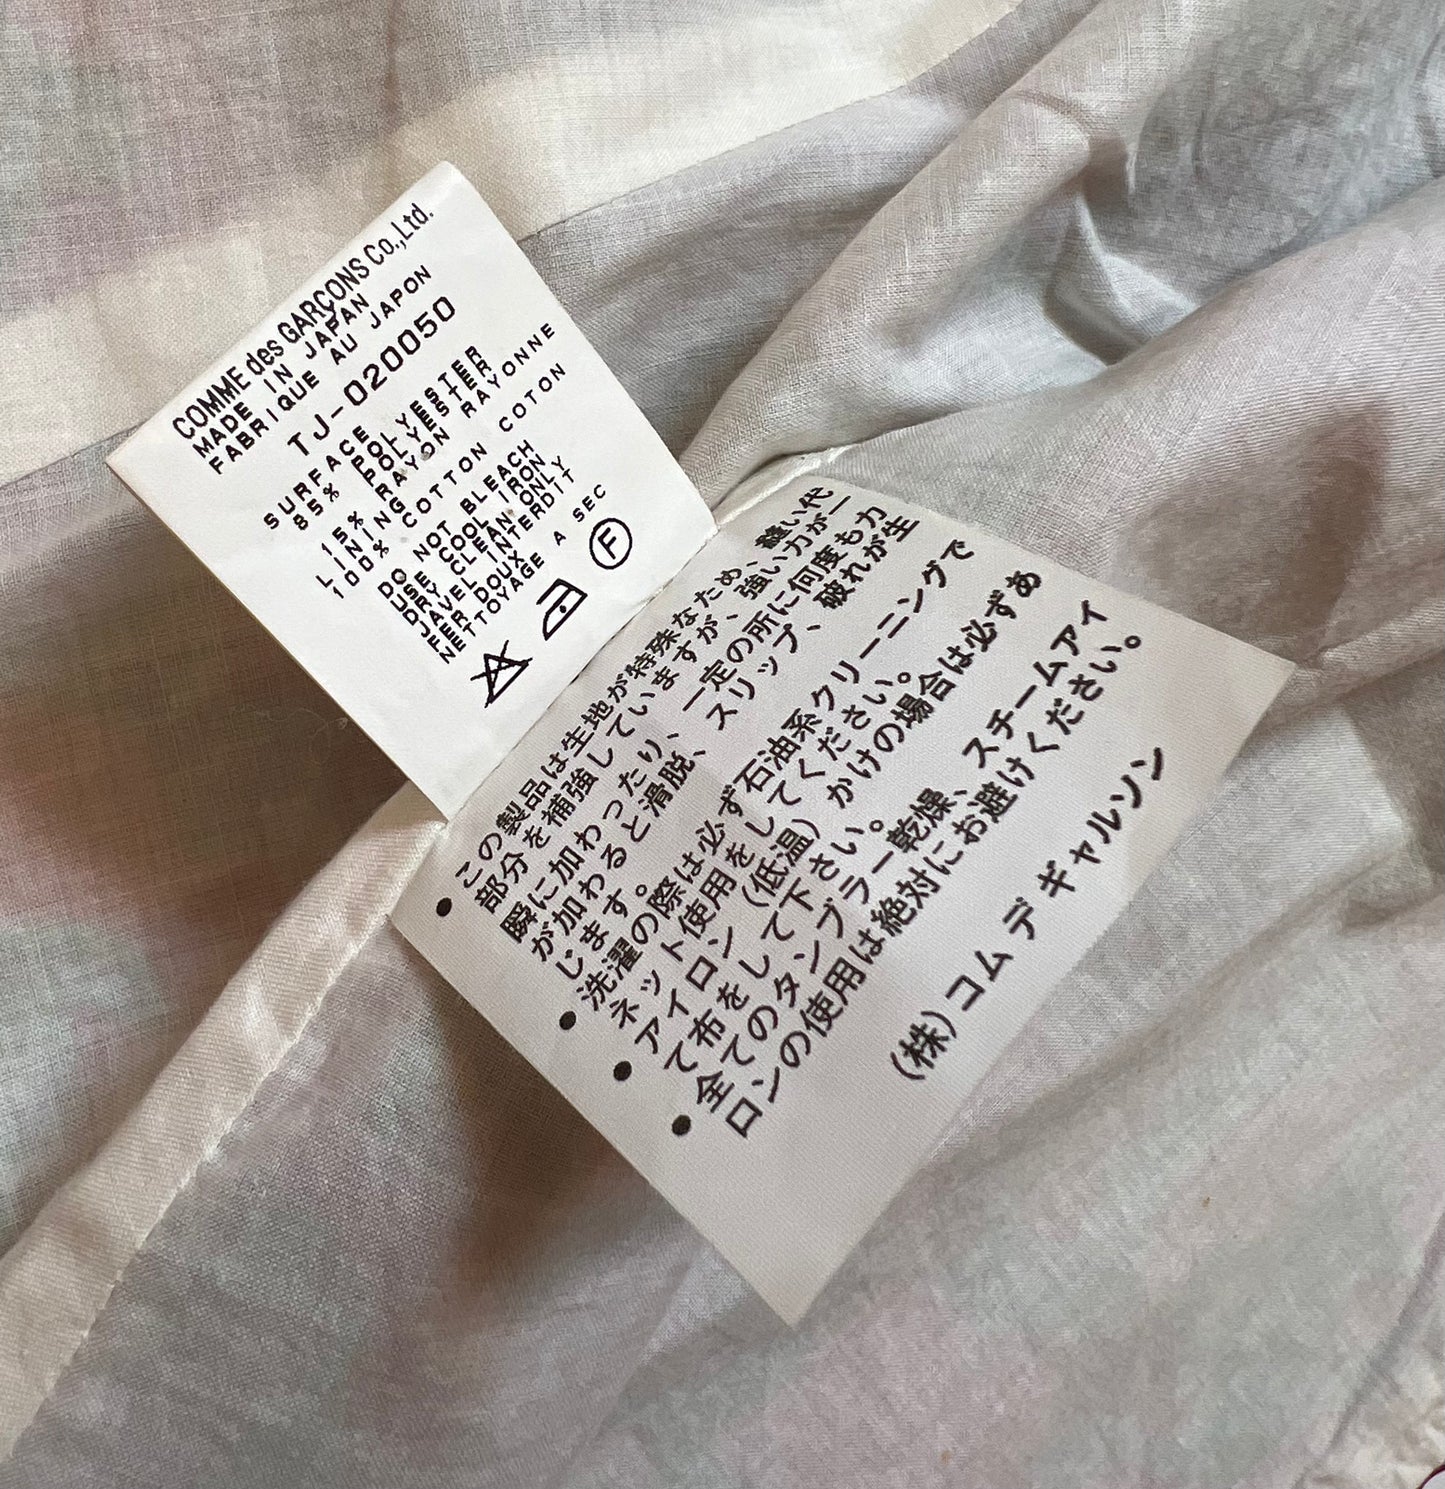 COMME des GARÇONS Co.,Ltd.
MADE IN JAPAN
FABRIQUE AU JAPON
TJ-020050
SURFACE POLYESTER
85% POLYESTER
RAYON RAYONNE
15%
LINING COTTON COTON
100%
DO NOT BLEACH
USE COOL IRON
DRY CLEAN ONLY
JAVEL INTERDIT
FER DOUX
NETTOYAGE A SEC
F
● この製品は生地が特殊なため、縫い代
部分を補強していますが、強い力が一
瞬に加わったり、一定の所に何度も力
が加わると滑脱、スリップ、破れが生
じます。
● 洗濯の際は必ず石油系クリーニングで
ネット使用をしてください。
● アイロン（低温）かけの場合は必ずあ
て布をして下さい。
● 全てのタンブラー乾燥、スチームアイ
ロンの使用は絶対にお避けください。
(株)コム デ ギャルソン